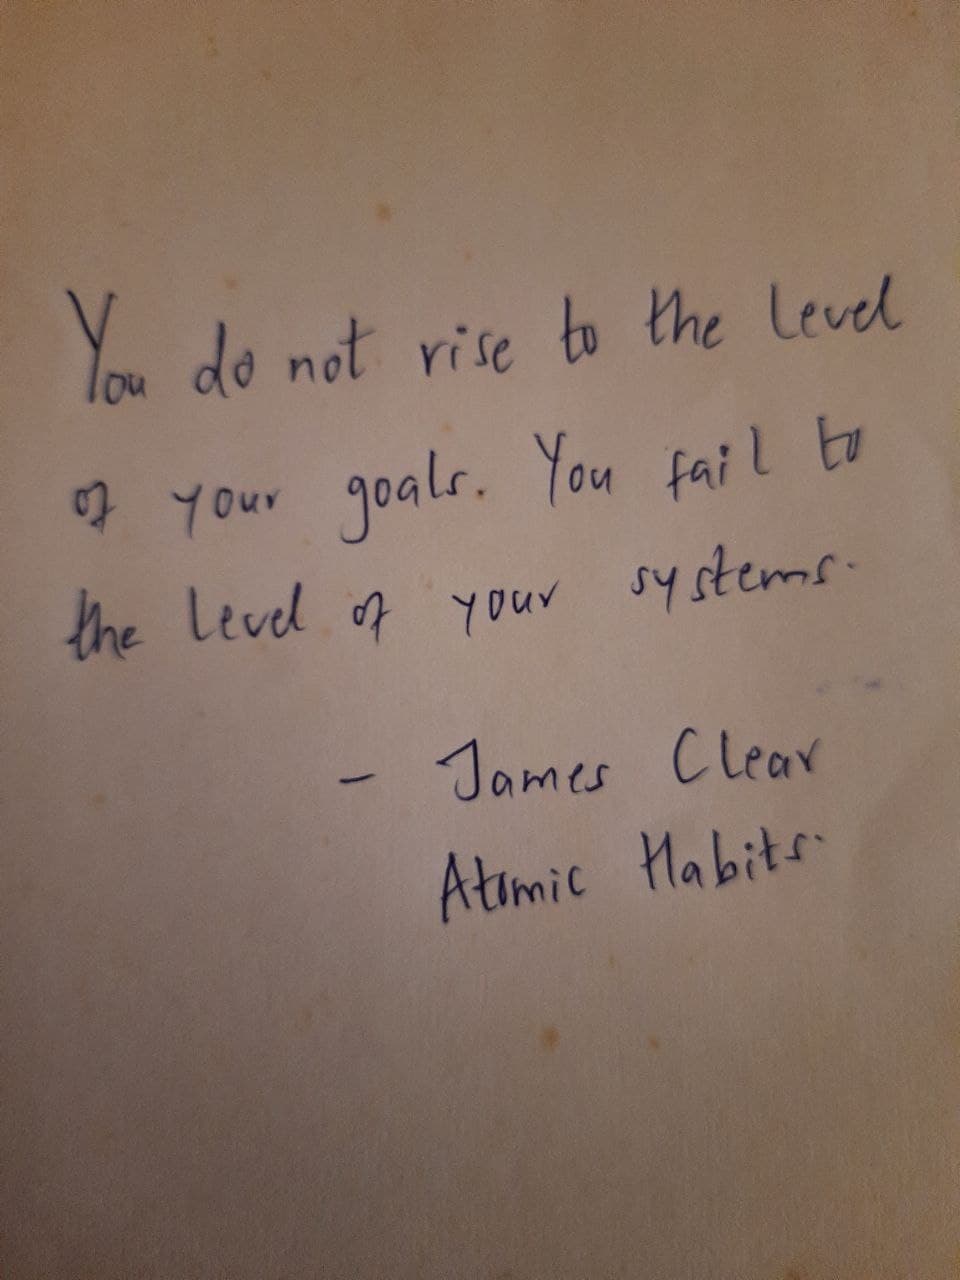 You do not rise to the level
of your goals. You fail to
the level of your systems.
- James Clear
Atomic Habits.